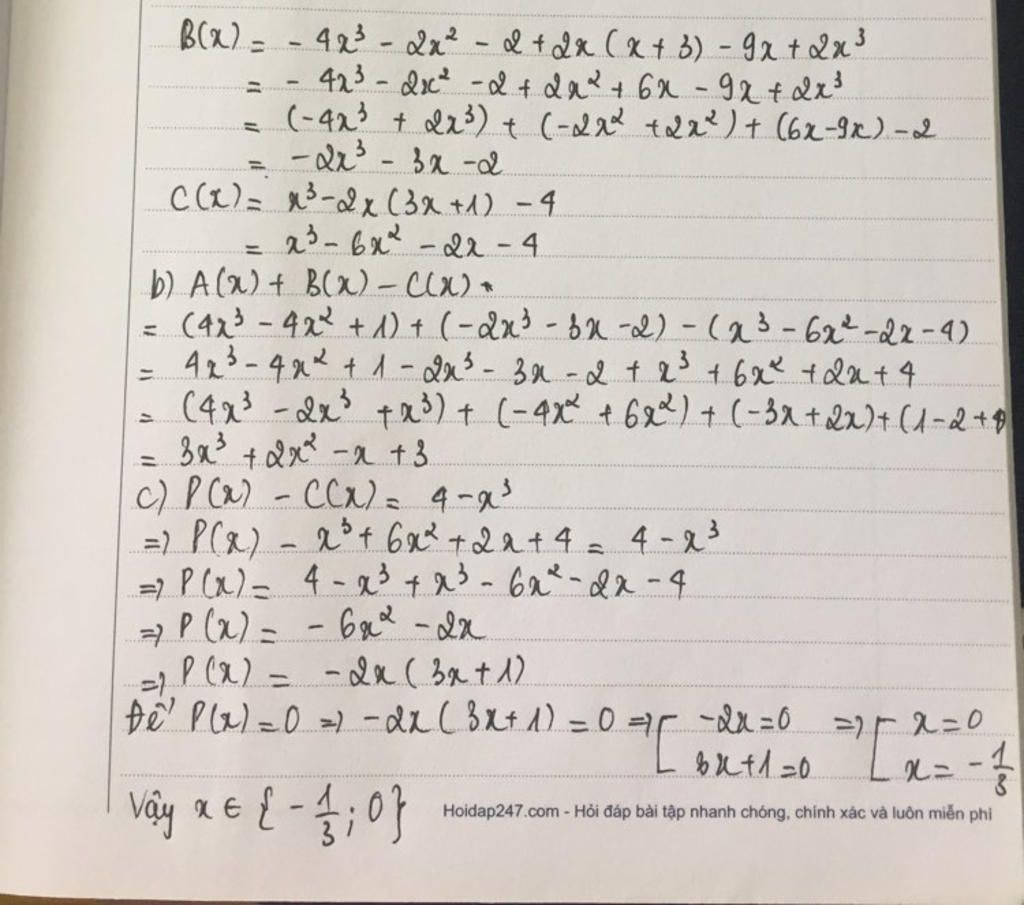 B(x) = - 4x³ - 2x² - 2 + 2x (x + 3) - 9x + 2x³
= - 4x³ - 2x² - 2 + 2x² + 6x - 9x + 2x³
= (-4x³ + 2x³) + (-2x² + 2x²) + (6x-9x) - 2
= -2x³ - 3x - 2
C(x) = x³ - 2x (3x + 1) - 4
= x³ - 6x² - 2x - 4
b) A(x) + B(x) - C(x)
= (4x³ - 4x² + 1) + (-2x³ - 3x - 2) - (x³ - 6x² - 2x - 4)
= 4x³ - 4x² + 1 - 2x³ - 3x - 2 + x³ + 6x² + 2x + 4
= (4x³ - 2x³ + x³) + (-4x² + 6x²) + (-3x + 2x) + (1 - 2 +
= 3x³ + 2x² - x + 3
c) P(x) - C(x) = 4 - x³
=> P(x) - x³ + 6x² + 2x + 4 = 4 - x³
=> P(x) = 4 - x³ + x³ - 6x² - 2x - 4
=> P(x) = - 6x² - 2x
=> P(x) = - 2x ( 3x + 1)
Để P(x) = 0 => -2x ( 3x + 1) = 0 => [ -2x = 0 => [ x = 0
3x + 1 = 0 x = - 1/3
Vậy x ∈ { - 1/3 ; 0 }
Hoidap247.com - Hỏi đáp bài tập nhanh chóng, chính xác và luôn miễn phí